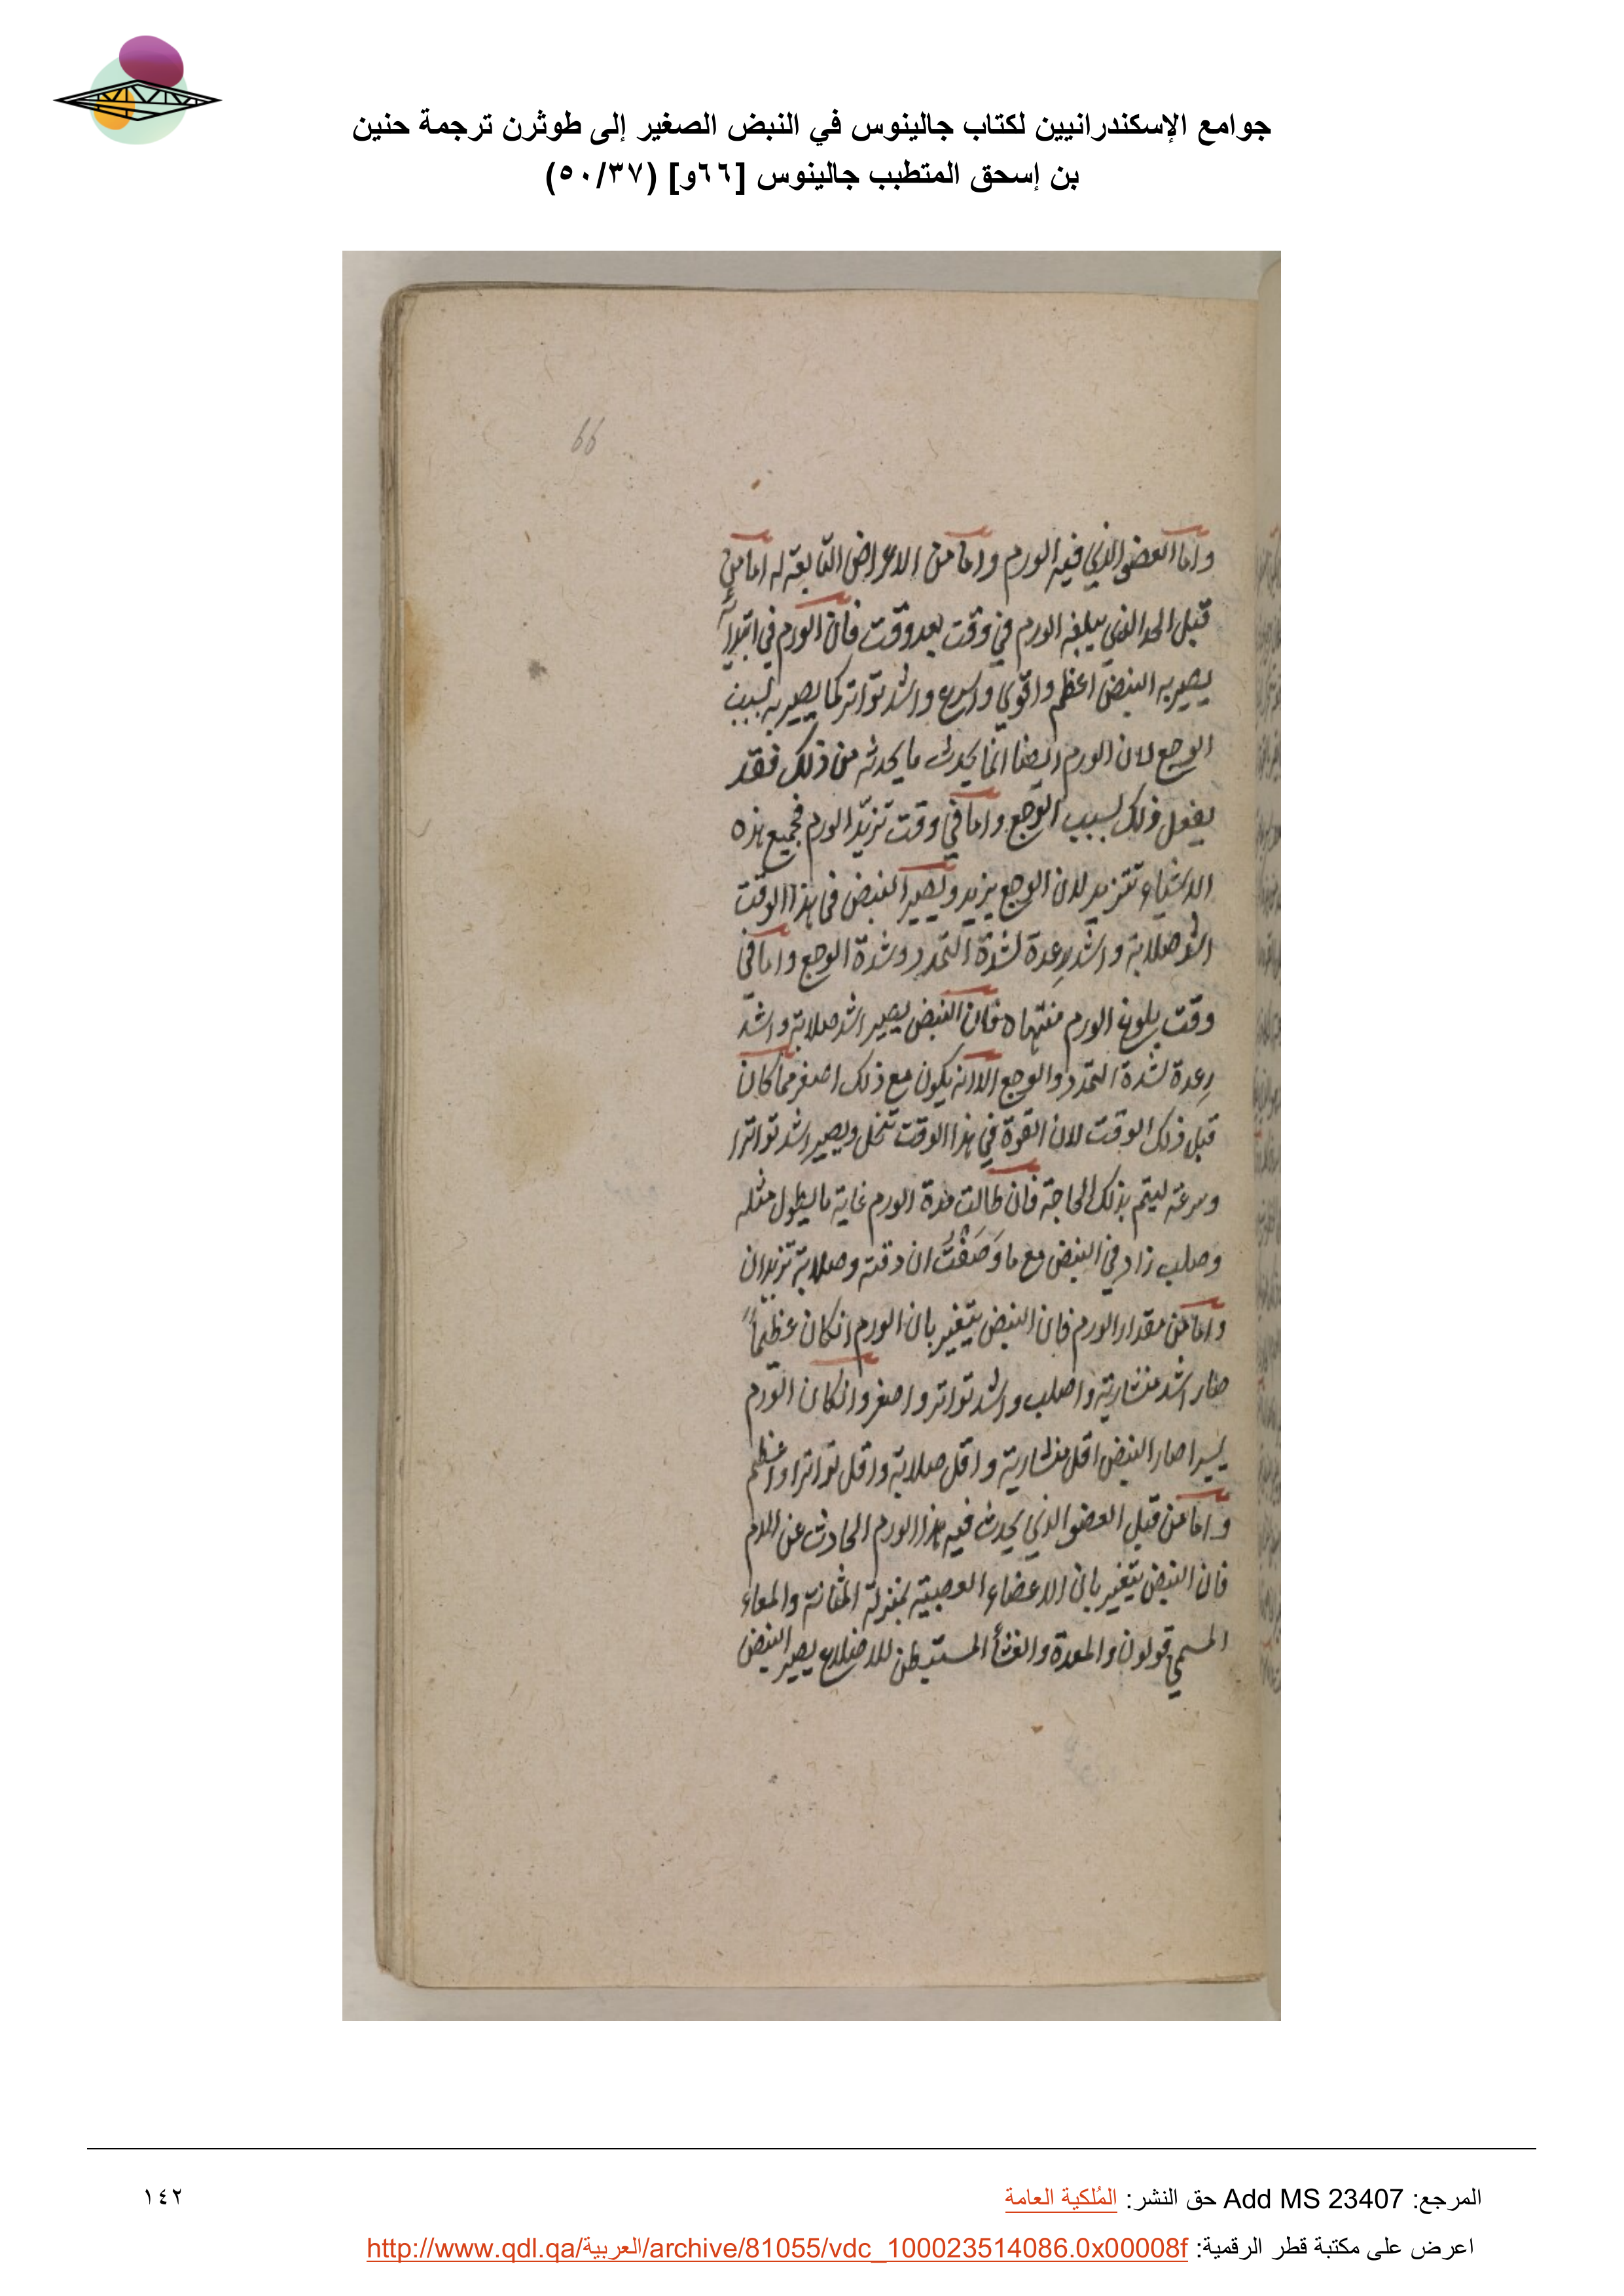 جوامع الإسكندرانيين لكتاب جالينوس في النبض الصغير إلى طوثرن ترجمة حنين
بن إسحق المتطبب جالينوس [٦٦و] (٥٠/٣٧)
66
واما العضو الذي فيه الورم واما من الاعراض التابعة له اما من
قبل الحد الذي يبلغه الورم في وقت بعد وقت فان الورم في ابتدآء
يصير به النبض اعظم واقوي واسرع واشد تواتر كما يصير به بسبب
الوجع لان الورم ايضا انما يحدث ما يحدثه من ذلك فقد
يفعل ذلك بسبب الوجع واما في وقت تزيد الورم فجميع هذه
الاشياء تتزيد لان الوجع يزيد ويصير النبض في هذا الوقت
اشد صلابة واشد رعدة لشدة التمدد وشدة الوجع واما في
وقت بلوغ الورم منتهاه فان النبض يصير اشد صلابة واشد
رعدة لشدة التمدد والوجع الا انه يكون مع ذلك اصغر مما كان
قبل ذلك الوقت لان القوة في هذا الوقت تنحل ويصير اشد تواترا
وسرعة ليتم بذلك الحاجة فان طالت مدة الورم غاية ما يطول مثله
وصلب زاد في النبض مع ما وَصَفْتُ ان دقته وصلابة تزيدان
واما من مقدار الورم فان النبض يتغير بان الورم انكان عظيماً
صار اشد منشارية واصلب واشد تواتر واصغر وانكان الورم
يسيرا صار النبض اقل منشارية واقل صلابة واقل تواترا واعظم
واما من قبل العضو الذي يحدث فيه هذا الورم الحادث عن الدم
فان النبض يتغير بان الاعضاء العصبية بمنزلة المثانة والمعاء
المسمي قولون والمعدة والغشأ المستبطن للاضلاع يصير النبض
المرجع: Add MS 23407 حق النشر: المُلكية العامة
١٤٢
اعرض على مكتبة قطر الرقمية: http://www.qdl.qa/العربية/archive/81055/vdc_100023514086.0x00008f